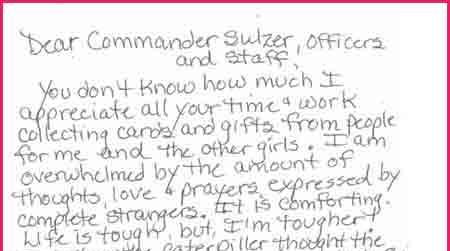 Dear Commander Sulzer, Officers
and Staff,
You don't know how much I
appreciate all your time & work
collecting cards and gifts from people
for me and the other girls. I am
overwhelmed by the amount of
thoughts, love & prayers expressed by
complete strangers. It is comforting.
Life is tough, but, I'm tougher!
caterpiller thought the